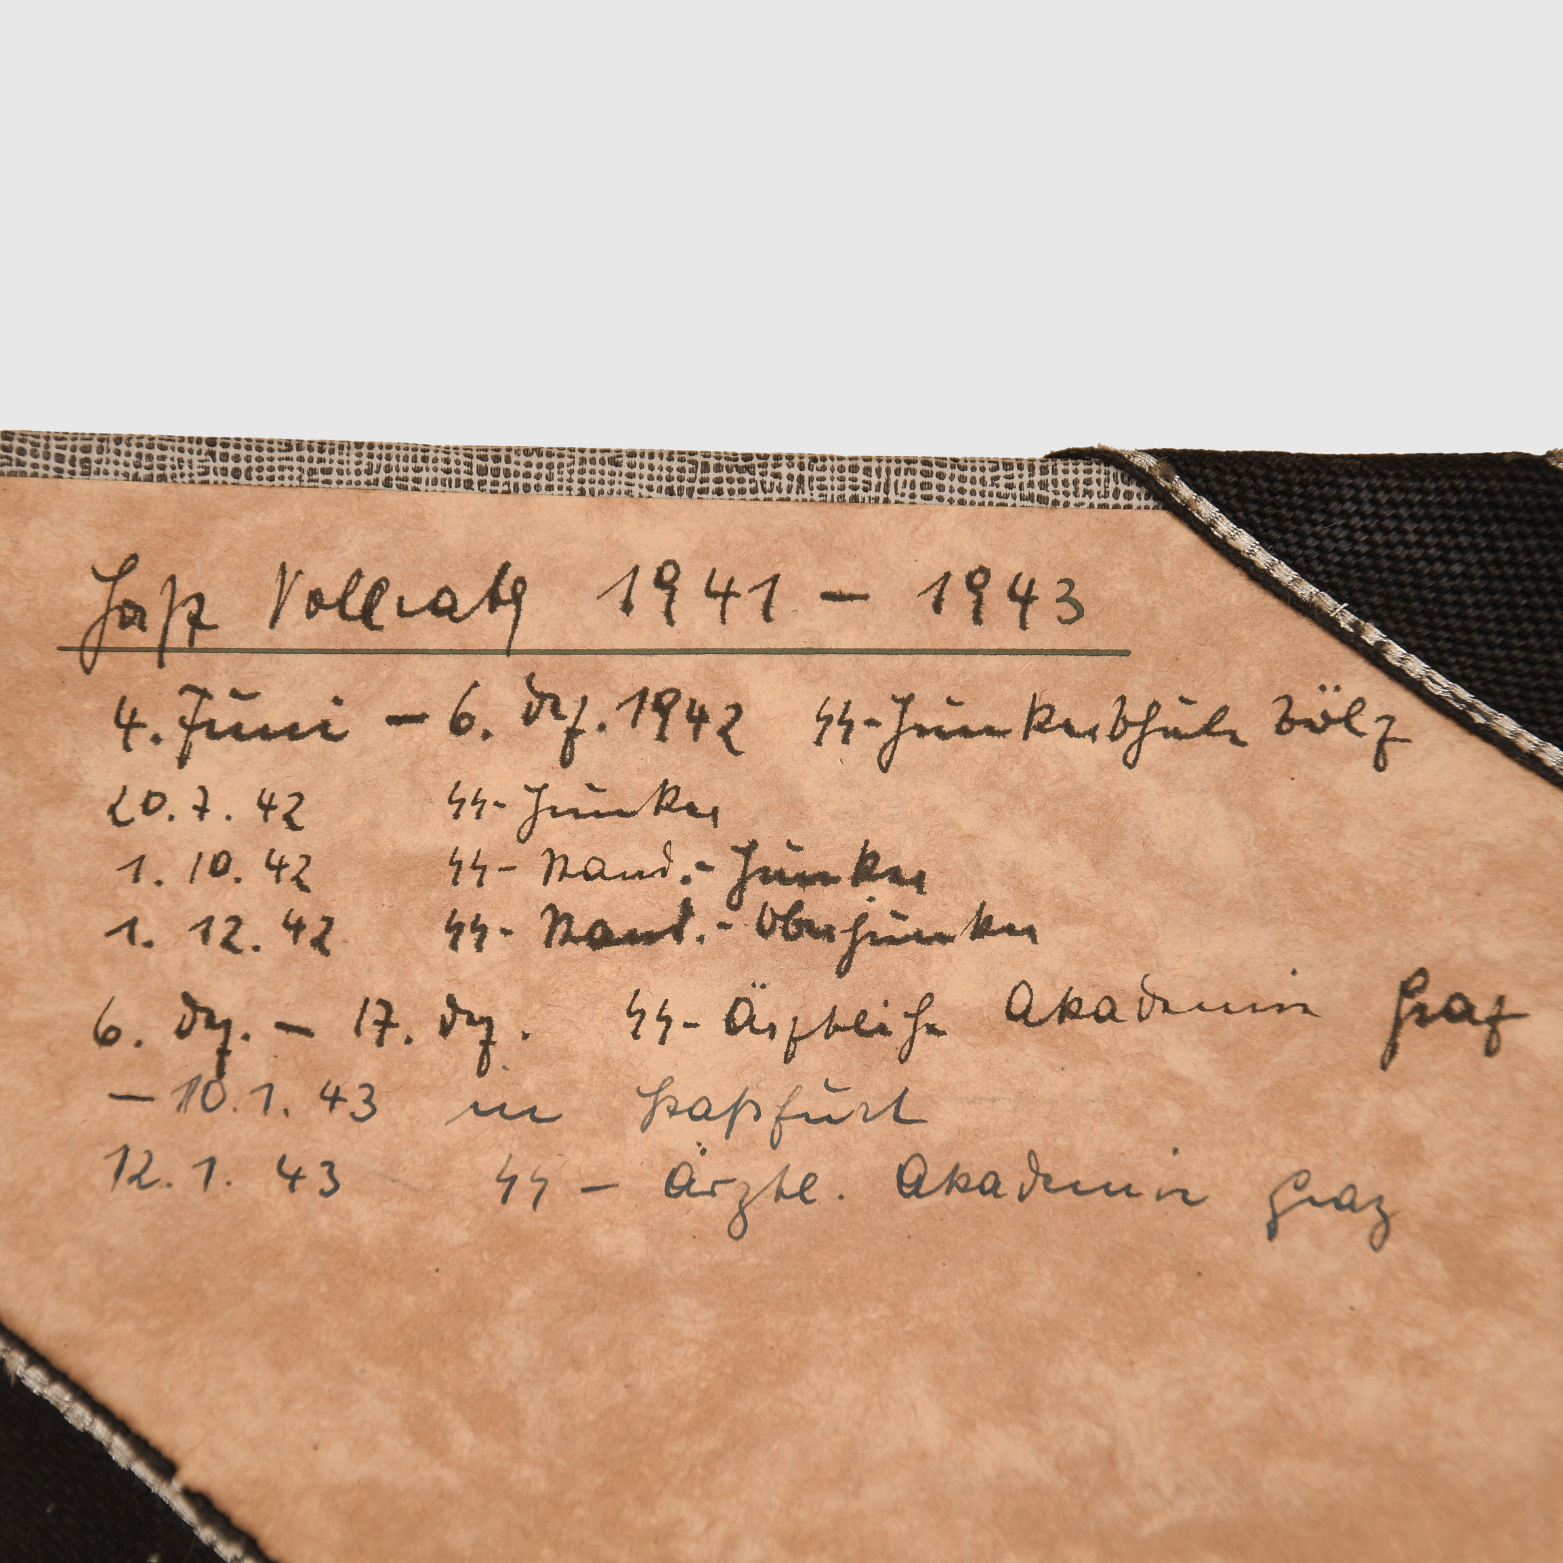 Haßp Vollrath 1941 – 1943
4. Juni – 6. Dez. 1942 SS-Junkerschule Tölz
20.7.42 SS-Junker
1.10.42 SS-Stand.-Junker
1.12.42 SS-Stand.-Oberjunker
6. Dez. – 17. Dez. SS-Ärztliche Akademie Graz
– 10.1.43 in Haßfurt
12.1.43 SS – Ärztl. Akademie Graz